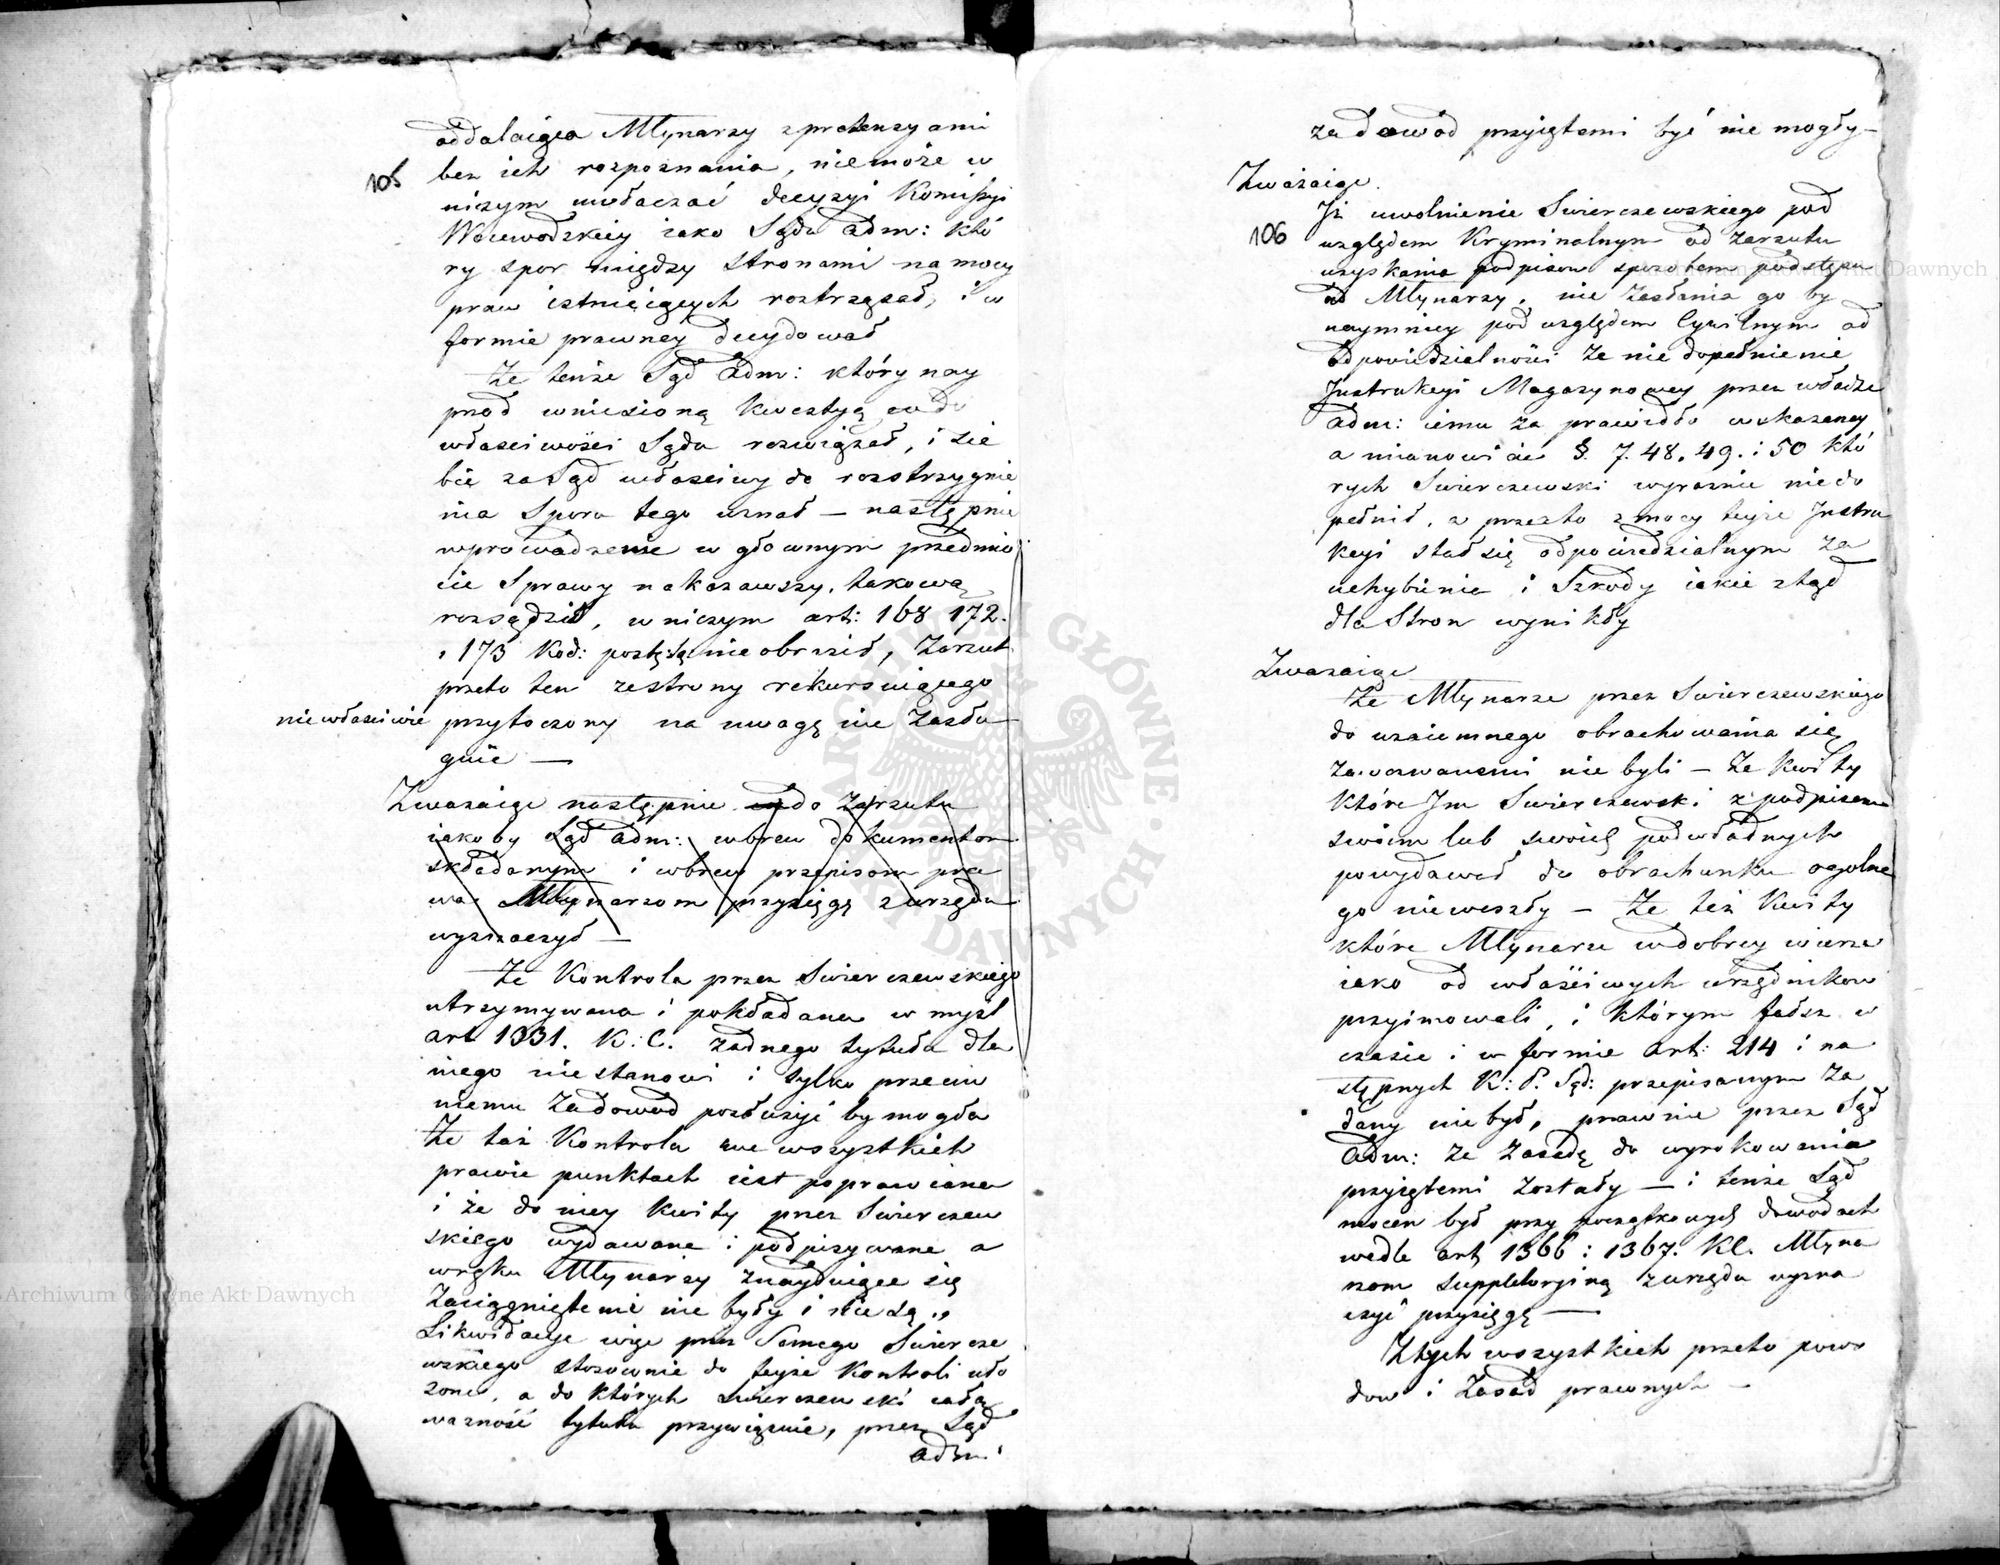 105
oddalaiąca Młynarzy z pretensyami
bez ich rozpoznania, niemoże w
niczym uwłaczać decyzyi Kommissyi
Woiewodzkiey iako Sądu adm: któ
ry spor między stronami na mocy
praw istnieiących roztrząsał, i w
formie prawney decydował
Że tenże Sąd adm: który nay
przod wniesioną kwestyą co do
właściwości Sądu rozwiązał, i sie
bie za Sąd właściwy do rozstrzygnie
nia Sporu tego uznał — następnie
wprowadzenie w głownym przedmio
cie Sprawy nakazawszy, takową
rozsądził, w niczym art: 168 172.
i 173 Kod: postę: są: nie obraził, Zarzut
przeto ten ze strony rekursuiącego
niewłaściwie przytoczony na uwagę nie zasłu
guie —
Zważaiąc następnie co do Zarzutu
iakoby Sąd adm: wbrew dokumentom
składanym i wbrew przepisom pra
wa Młynarzom przysięgę z urzędu
wyznaczył —
Że Kontrola przez Swierczewskiego
utrzymywana i pokładana w myśl
art 1331. K: C. żadnego tytułu dla
niego niestanowi i tylko przeciw
niemu za dowod posłużyć by mogła
Że taż Kontrola we wszystkich
prawie punktach iest poprawiana
i że do niey Kwity przez Swierczew
skiego wydawane i podpisywane a
w ręku Młynarzy znayduiące się
Zaciągniętemi nie były i nie są,,
Likwidacye więc przez Samego Swiercze
wskiego stosownie do teyże Kontroli uło
zone, a do których Swierczewski całą
wazność tytułu przywięzuie, przez Sąd
adm:
za dowód przyiętemi być nie mogły —
Zważaiąc.
106
Iż uwolnienie Swierczewskiego pod
względem Kryminalnym od zarzutu
uzyskania podpisow sposobem podstępu
od Młynarzy, nie zasłania go by
naymniey pod względem Cywilnym od
odpowiedzialności za niedopełnienie
Instrukcyi Magazynowey przez władze
adm: iemu za prawidło wskazaney
a mianowicie §. 7. 48. 49. i 50 któ
rych Swierczewski wyraźnie niedo
pełnił, a przezto z mocy teyże Instru
kcyi stał się odpowiedzialnym za
uchybienie i Szkody iakie ztąd
dla Stron wynikły
Zważaiąc
Że Młynarze przez Swierczewskiego
do wzaiemnego obrachowania się
zawezwanemi nie byli — Że Kwity
które Im Swierczewski z podpisem
swoim lub swoich podwładnych
powydawał do obrachunku ogolne
go nieweszły — Że też Kwity
które Młynarze w dobrey wierze
iako od właściwych urzędnikow
przyimowali, i którym fałsz w
czasie i w formie art: 214 i na
stępnych K: P. Są: przepisanym za
dany nie był, prawnie przez Sąd
adm: za zasadę do wyrokowania
przyiętemi zostały — i tenże Sąd
mocen był przy początkowych dowodach
wedle art 1366 i 1367. KC. Młyna
rzom suppletoryiną z urzędu wyzna
czyć przysięgę —
Z tych wszystkich przeto powo
dow i Zasad prawnych —
Archiwum Główne Akt Dawnych